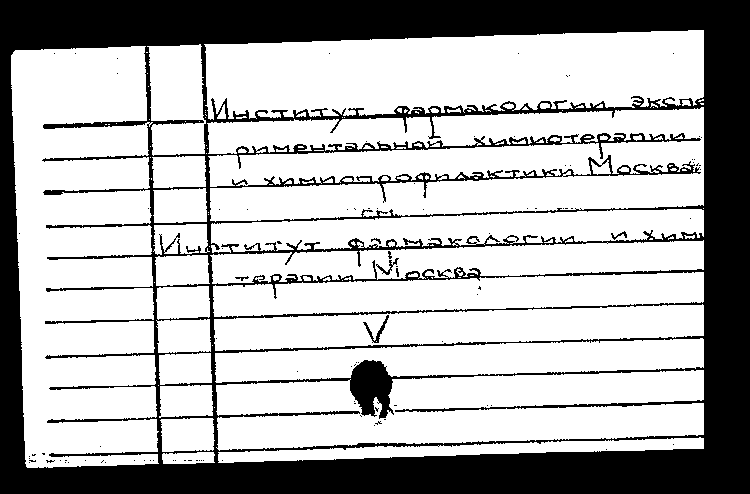 Институт фармакологии, экспе
риментальной химиотерапии
и химиопрофилактики Москва
см.
Институт фармакологии и хими
терапии Москва
V